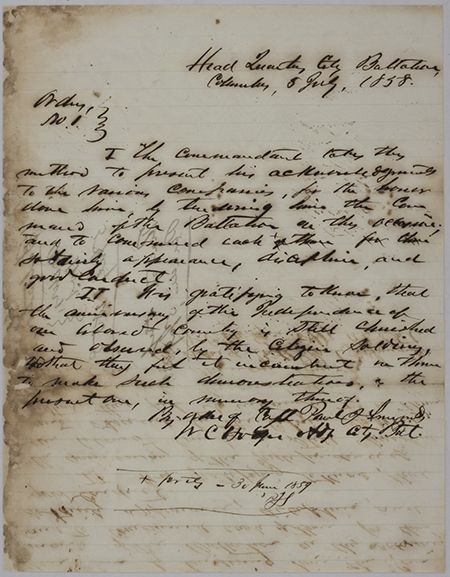 Head Quarters City Battalion,
Columbus, 5 July, 1858.
Orders,
No. 1.
I The Commandant takes this
method to present his acknowledgments
to the various companies, for the honor
done him, by the giving him the Com
mand of the Battalion on this occasion,
and to commend each of them for their
soldierly appearance, discipline, and
good conduct.
II It is gratifying to know, that
the anniversary of the Independence of
our Country is still cherished
and observed, by the Citizen Soldiery,
that they feel it incumbent on them
to make such demonstrations, as the
present one, in memory thereof.
By order of Capt Paul J.
W C Adj City Bat.
30 June 1859